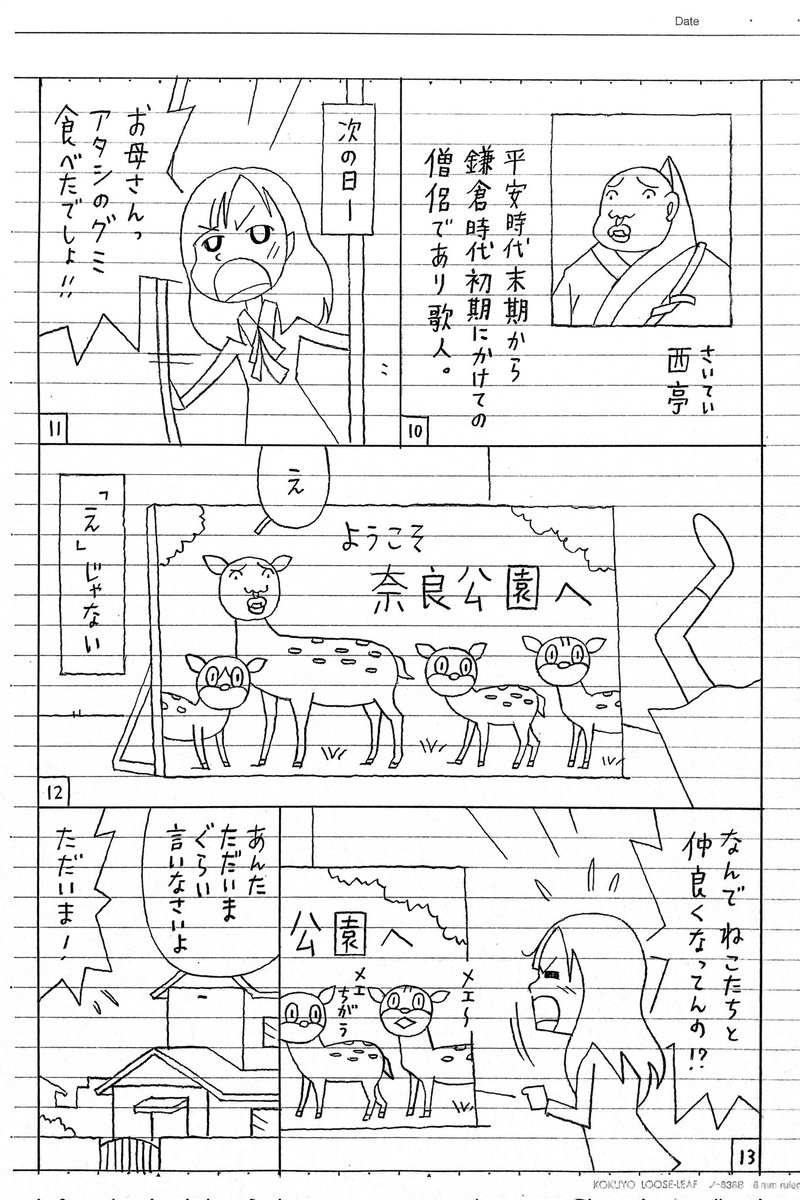 Date
さいてい
西亭
平安時代末期から
鎌倉時代初期にかけての
僧侶であり歌人。
10
次の日ー
お母さんっ
アタシのグミ
食べたでしょ!!
11
え
ようこそ
奈良公園へ
「え」じゃない
12
なんでねこたちと
仲良くなってんの!?
公園へ
メェ~
メェ
ちがう
13
あんた
ただいま
ぐらい
言いなさいよ
ただいま!
KOKUYO LOOSE-LEAF ノ-836B 6 mm ruled